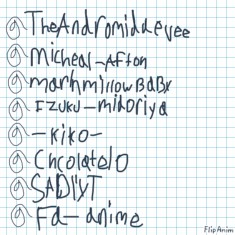 @TheAndromidaevee
@Micheal-Afton
@marhmillowBaBx
@Izuku-midoriya
@-kiko-
@Chcolatelo
@SADIIXT
@Fd-anime
FlipAnim